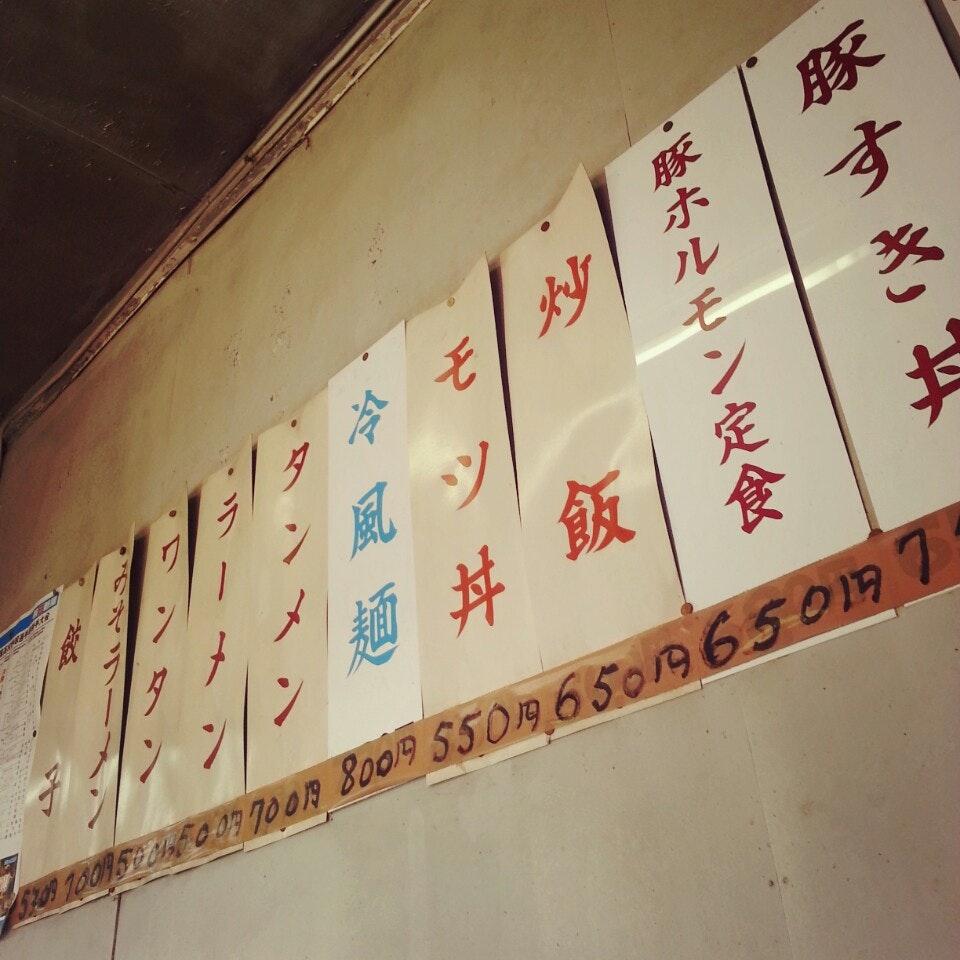 豚すき丼
豚ホルモン定食
炒飯
モツ丼
冷風麺
タンメン
ラーメン
ワンタン
みそラーメン
餃子
650円
650円
550円
800円
700円
500円
500円
700円